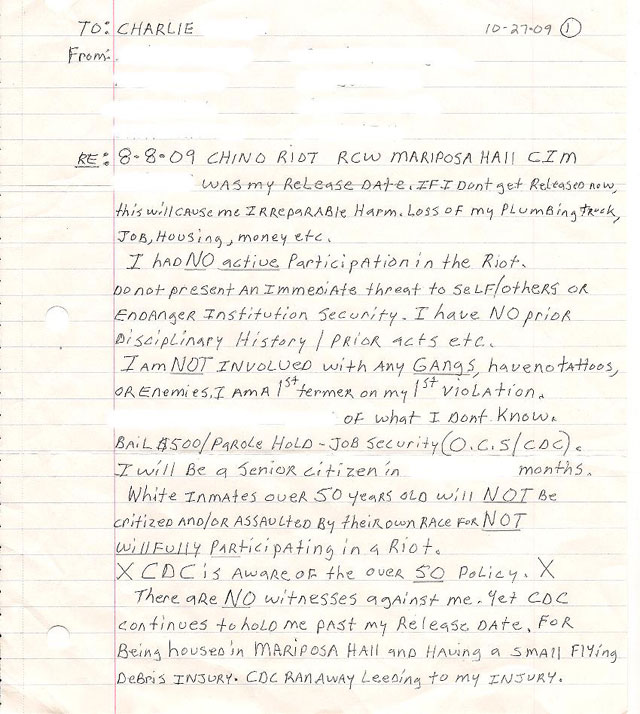 TO: CHARLIE 10-27-09 ①
From:
RE: 8-8-09 CHINO RIOT RCW MARIPOSA HALL CIM
WAS my Release DATE. IF I Dont get Released now,
this will CAUSE me IRREPARABLE HARM. LOSS OF my PLUMBING TRUCK,
JOB, HOUSING, money etc.
I HAD NO active Participation in the Riot.
DO not present AN Immediate threat to SELF/OTHERS OR
ENDANGER Institution Security. I have NO prior
Disciplinary History / PRIOR acts etc.
I am NOT INVOLVED with Any GANGS, have no tattoos,
OR Enemies. I AM A 1st termer on my 1st violation.
of what I Dont Know.
BAIL $500/PAROLE HOLD - JOB Security (O.C.S/CDC).
I will Be a Senior citizen in months.
White Inmates over 50 years old will NOT Be
critized AND/OR ASSAULTED By their own RACE FOR NOT
WILLFULLY Participating in a Riot.
X CDC is AWARE OF the over 50 Policy. X
There are NO witnesses against me. Yet CDC
continues to hold me past my Release DATE, FOR
Being housed in MARIPOSA HAll and HAVING a SMALL FLYING
DeBRIS INJURY. CDC RAN AWAY LEEDING to my INJURY.